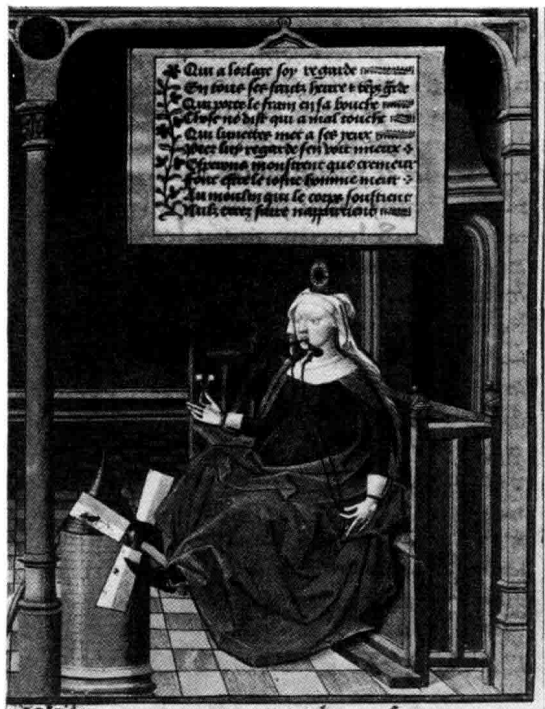 Qui a lorloge soy regarde
En tous ses faictz heure et temps garde
Qui porte le frain en sa bouche
Chose ne dist qui a mal touche
Qui lunettes met a ses yeux
Pres luy regarde sen voit mieux
Esperons monstrent que cremeur
Font estre le josne homme meur
Au moulin qui le corps soustient
Nulz exces faire nappartient